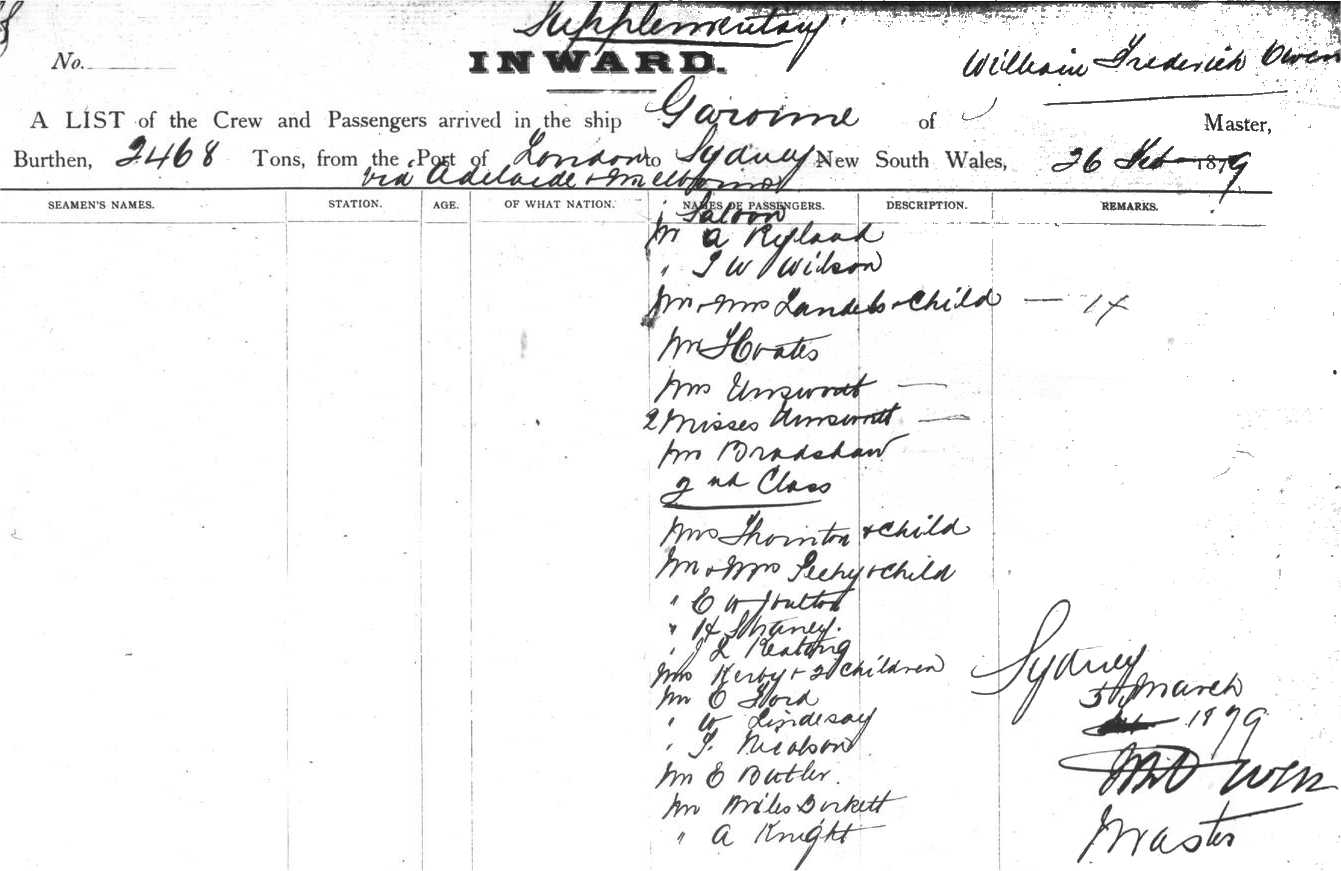 Supplementary
No.
INWARD.
William Frederick Owen
A LIST of the Crew and Passengers arrived in the ship Garonne of Master,
Burthen, 2468 Tons, from the Port of London to Sydney New South Wales, 26 Feb 1879
via Adelaide & Melbourne
SEAMEN'S NAMES. STATION. AGE. OF WHAT NATION. NAMES OF PASSENGERS. DESCRIPTION. REMARKS.
Saloon
Mr A Ryland
" J W Wilson
Mr & Mrs Landels & Child — 1
Mr
Mrs Unswortt —
2 Misses Unswortt —
Mr Bradshaw
2nd Class
Mrs Thornton & Child
Mr & Mrs & Child
" E W
" H
" J L Keating
Mrs Kerby & 2 Children
Mr E Ford
" W Lindesay
" T. Nicolson
Mr E Butler.
Mr Miles Borkett
" A Knight
Sydney
5 March
1879
Wm Owen
Master